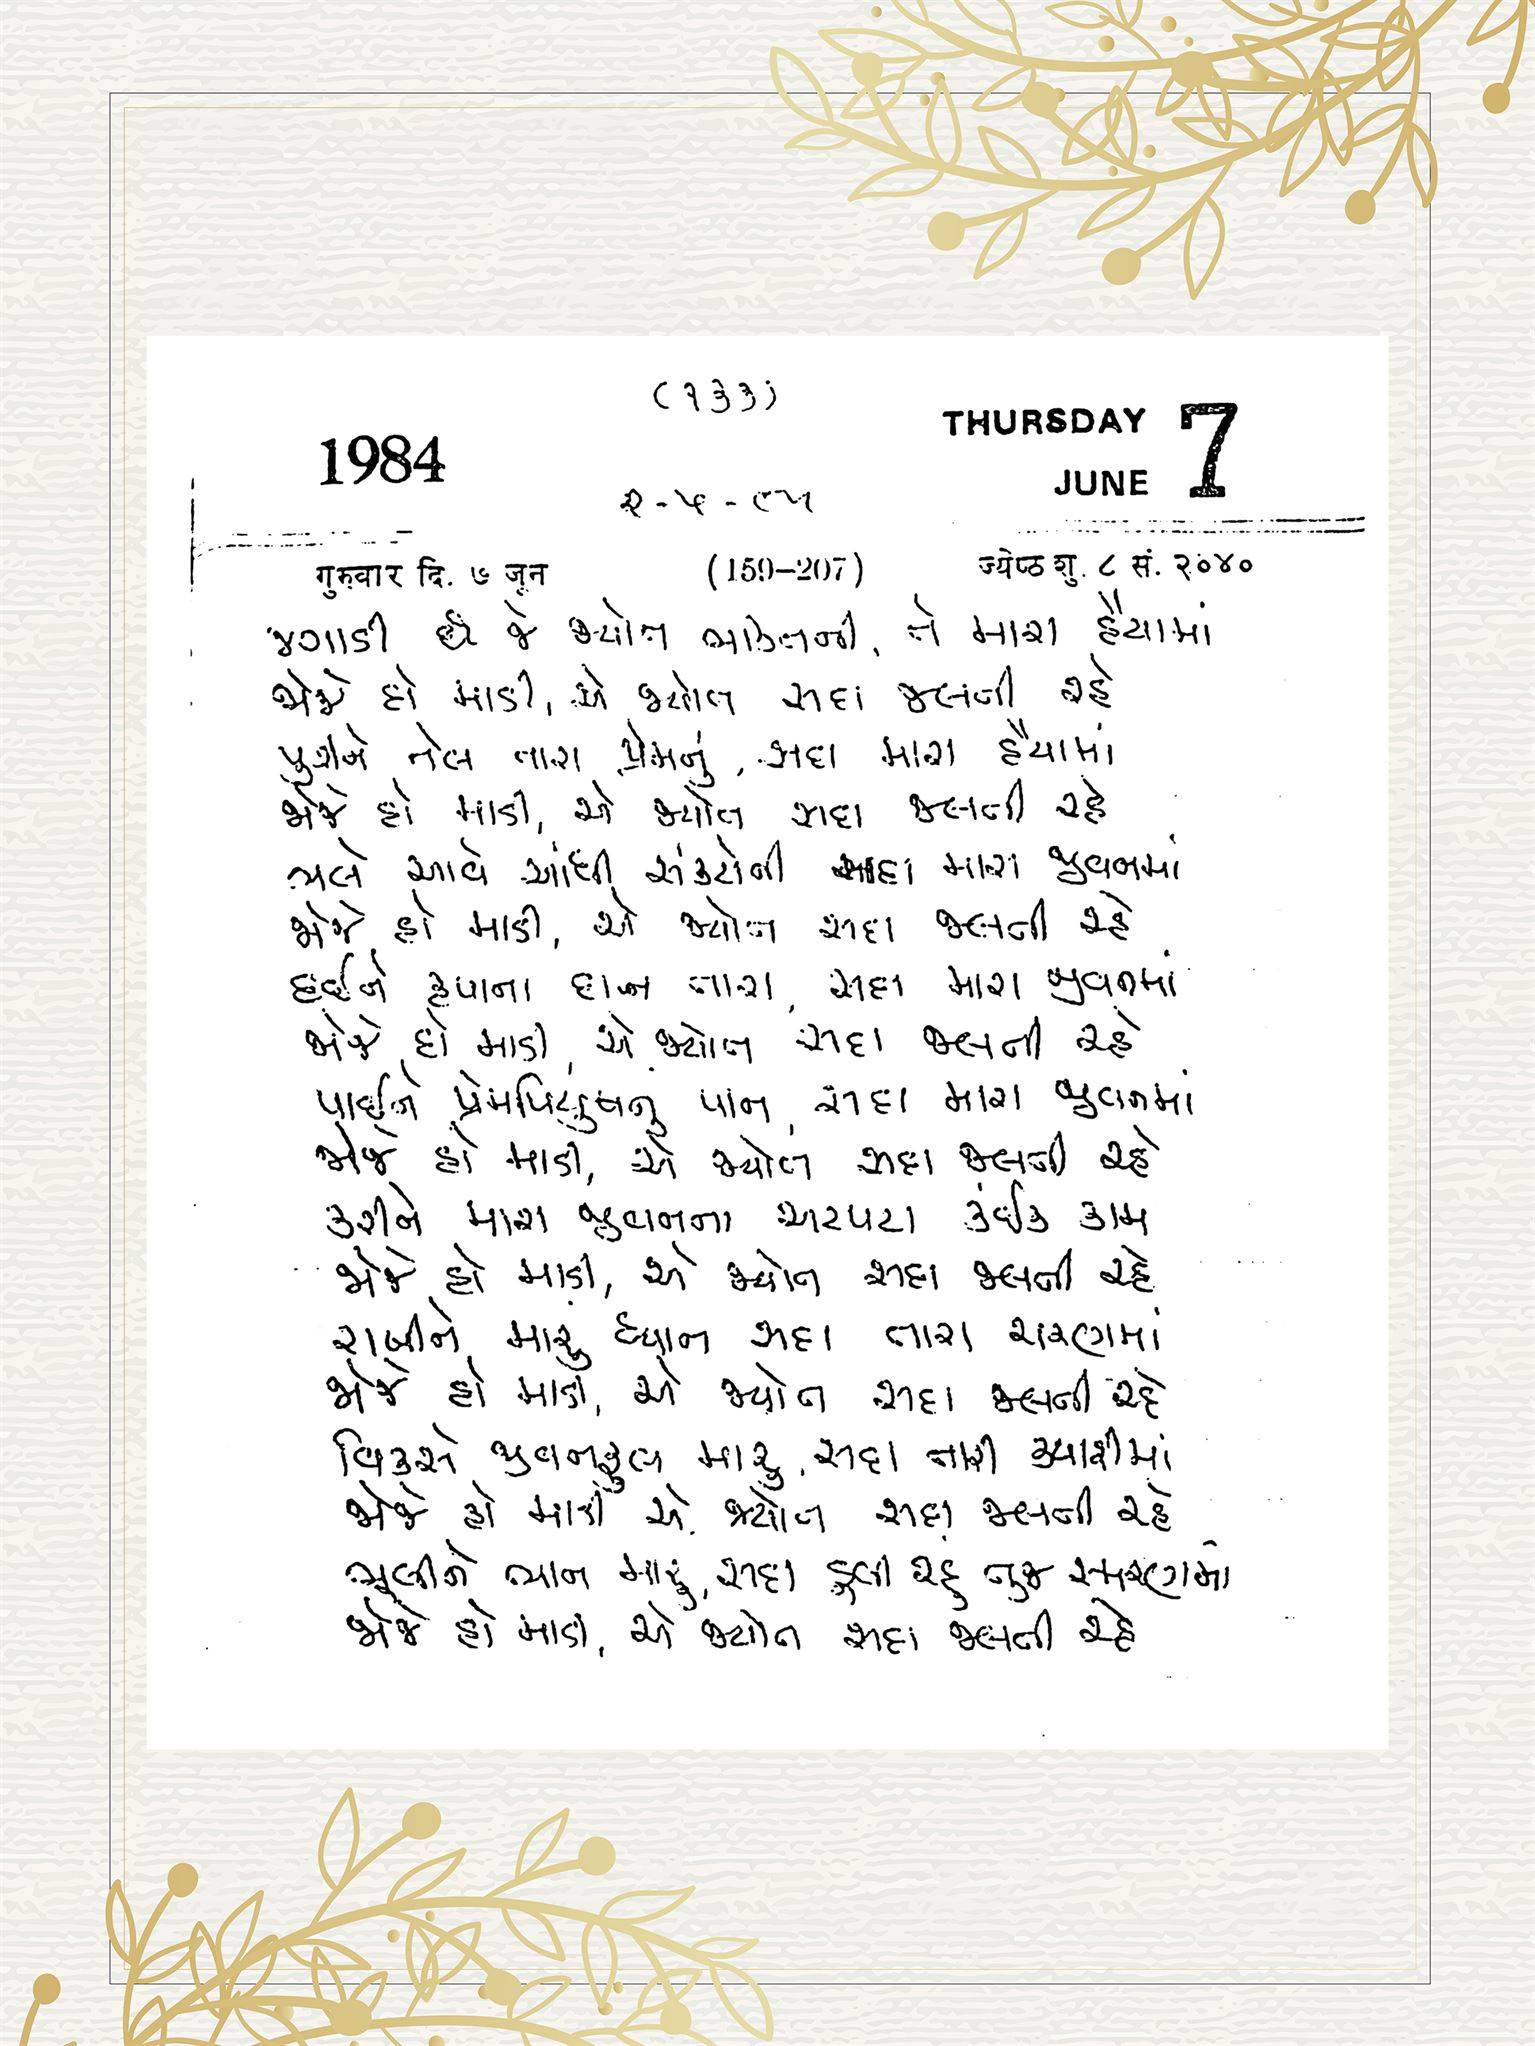 (૧૩૩)
1984
THURSDAY 7
JUNE
૨-૫-૮૫
गुरुवार दि. ७ जून (159–207) ज्येष्ठ शु. ८ सं. २०४०
જગાડી છે જે જ્યોત ભક્તિની, તે મારા હૈયામાં
જોજે હો માડી, એ જ્યોત સદા જલતી રહે
પુરીને તેલ તારા પ્રેમનું, સદા મારા હૈયામાં
જોજે હો માડી, એ જ્યોત સદા જલતી રહે
ભલે આવે આંધી સંકટોની સદા મારા જીવનમાં
જોજે હો માડી, એ જ્યોત સદા જલતી રહે
દઈને કૃપાના દાન તારા, સદા મારા જીવનમાં
જોજે હો માડી, એ જ્યોત સદા જલતી રહે
પાઈને પ્રેમપિયુષનું પાન, સદા મારા જીવનમાં
જોજે હો માડી, એ જ્યોત સદા જલતી રહે
કરીને મારા જીવનના અટપટા કંઈક કામ
જોજે હો માડી, એ જ્યોત સદા જલતી રહે
રાખીને મારું ધ્યાન સદા તારા શરણમાં
જોજે હો માડી, એ જ્યોત સદા જલતી રહે
વિકસે જીવનફુલ મારું, સદા તારી ક્યારીમાં
જોજે હો માડી એ જ્યોત સદા જલતી રહે
ભૂલીને ભાન મારું, સદા ડૂલી રહું તુજ સ્મરણમાં
જોજે હો માડી, એ જ્યોત સદા જલતી રહે